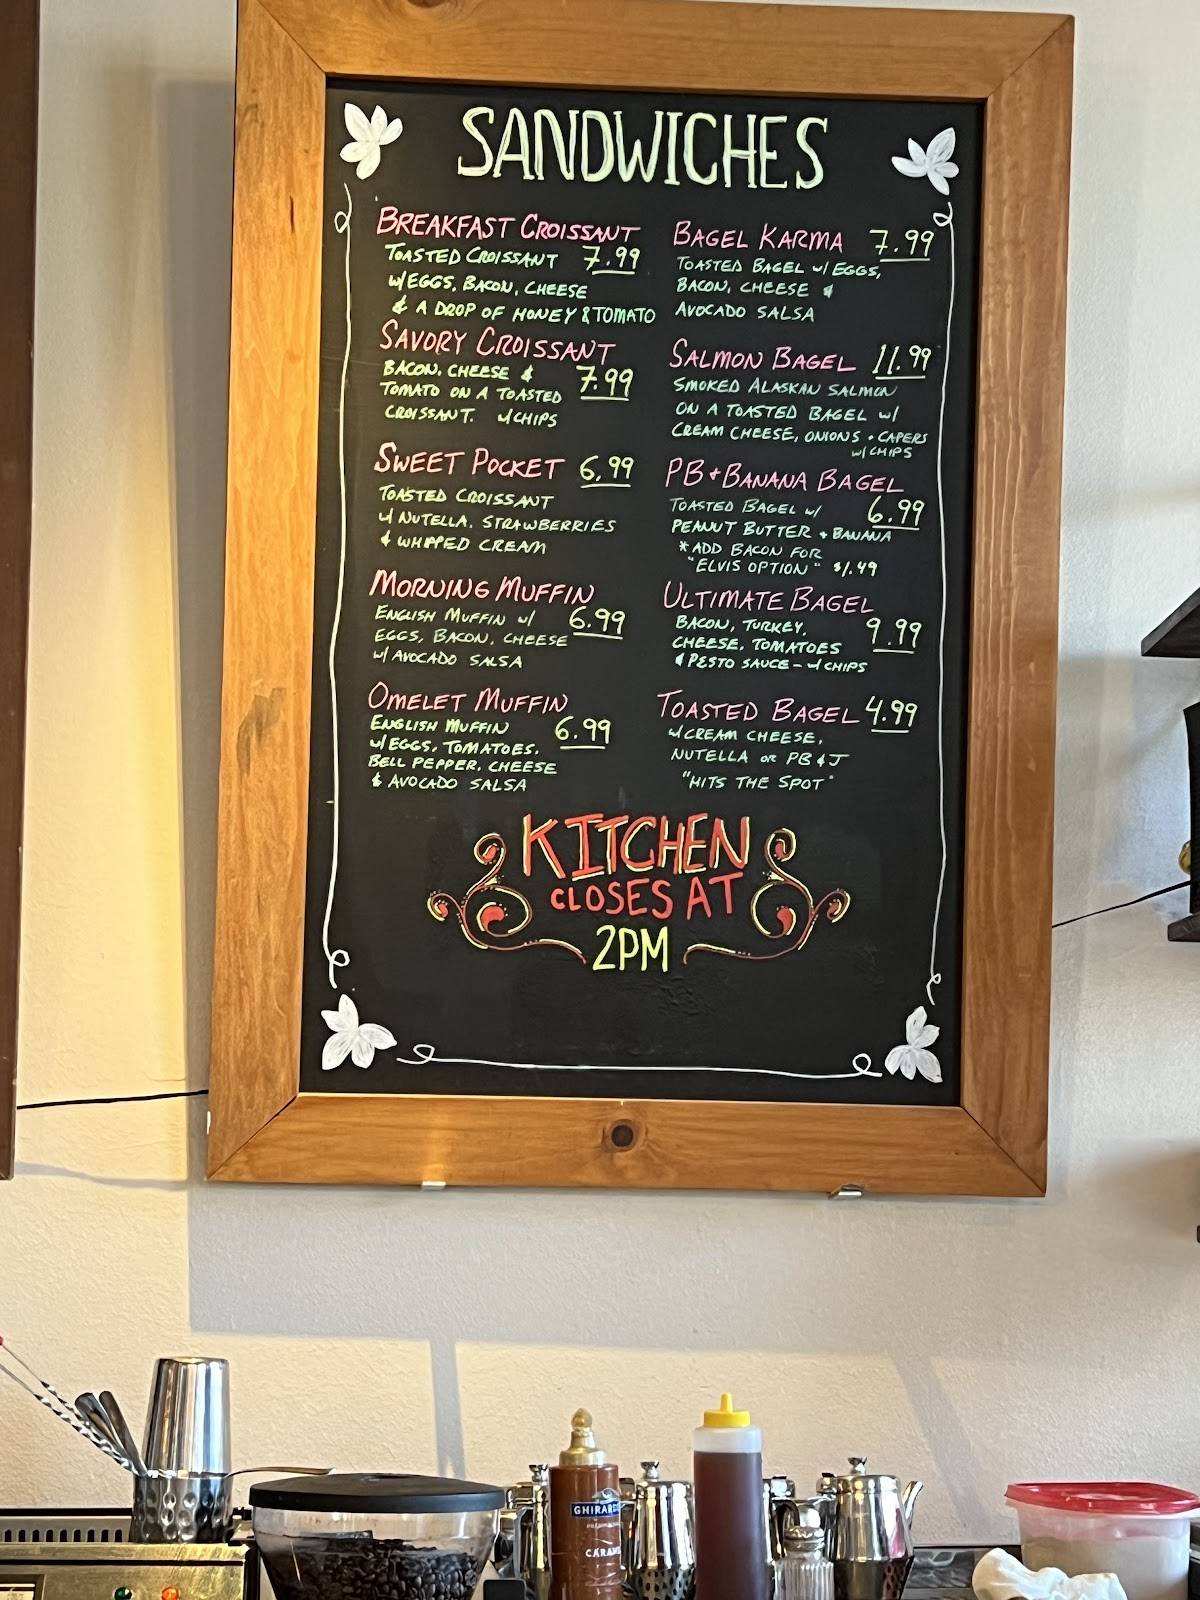 SANDWICHES
BREAKFAST CROISSANT
TOASTED CROISSANT 7.99
w/EGGS, BACON, CHEESE
& A DROP OF HONEY & TOMATO
SAVORY CROISSANT
BACON, CHEESE & 7.99
TOMATO ON A TOASTED
CROISSANT. w/CHIPS
SWEET POCKET 6.99
TOASTED CROISSANT
w/ NUTELLA, STRAWBERRIES
& WHIPPED CREAM
MORNING MUFFIN
ENGLISH MUFFIN w/ 6.99
EGGS, BACON, CHEESE
w/ AVOCADO SALSA
OMELET MUFFIN
ENGLISH MUFFIN 6.99
w/EGGS, TOMATOES,
BELL PEPPER, CHEESE
& AVOCADO SALSA
BAGEL KARMA 7.99
TOASTED BAGEL w/ EGGS,
BACON, CHEESE &
AVOCADO SALSA
SALMON BAGEL 11.99
SMOKED ALASKAN SALMON
ON A TOASTED BAGEL w/
CREAM CHEESE, ONIONS + CAPERS
w/ CHIPS
PB+BANANA BAGEL
TOASTED BAGEL w/ 6.99
PEANUT BUTTER + BANANA
*ADD BACON FOR
"ELVIS OPTION" $1.49
ULTIMATE BAGEL
BACON, TURKEY, 9.99
CHEESE, TOMATOES
& PESTO SAUCE - w/ CHIPS
TOASTED BAGEL 4.99
w/CREAM CHEESE,
NUTELLA or PB & J
"HITS THE SPOT"
KITCHEN
CLOSES AT
2PM